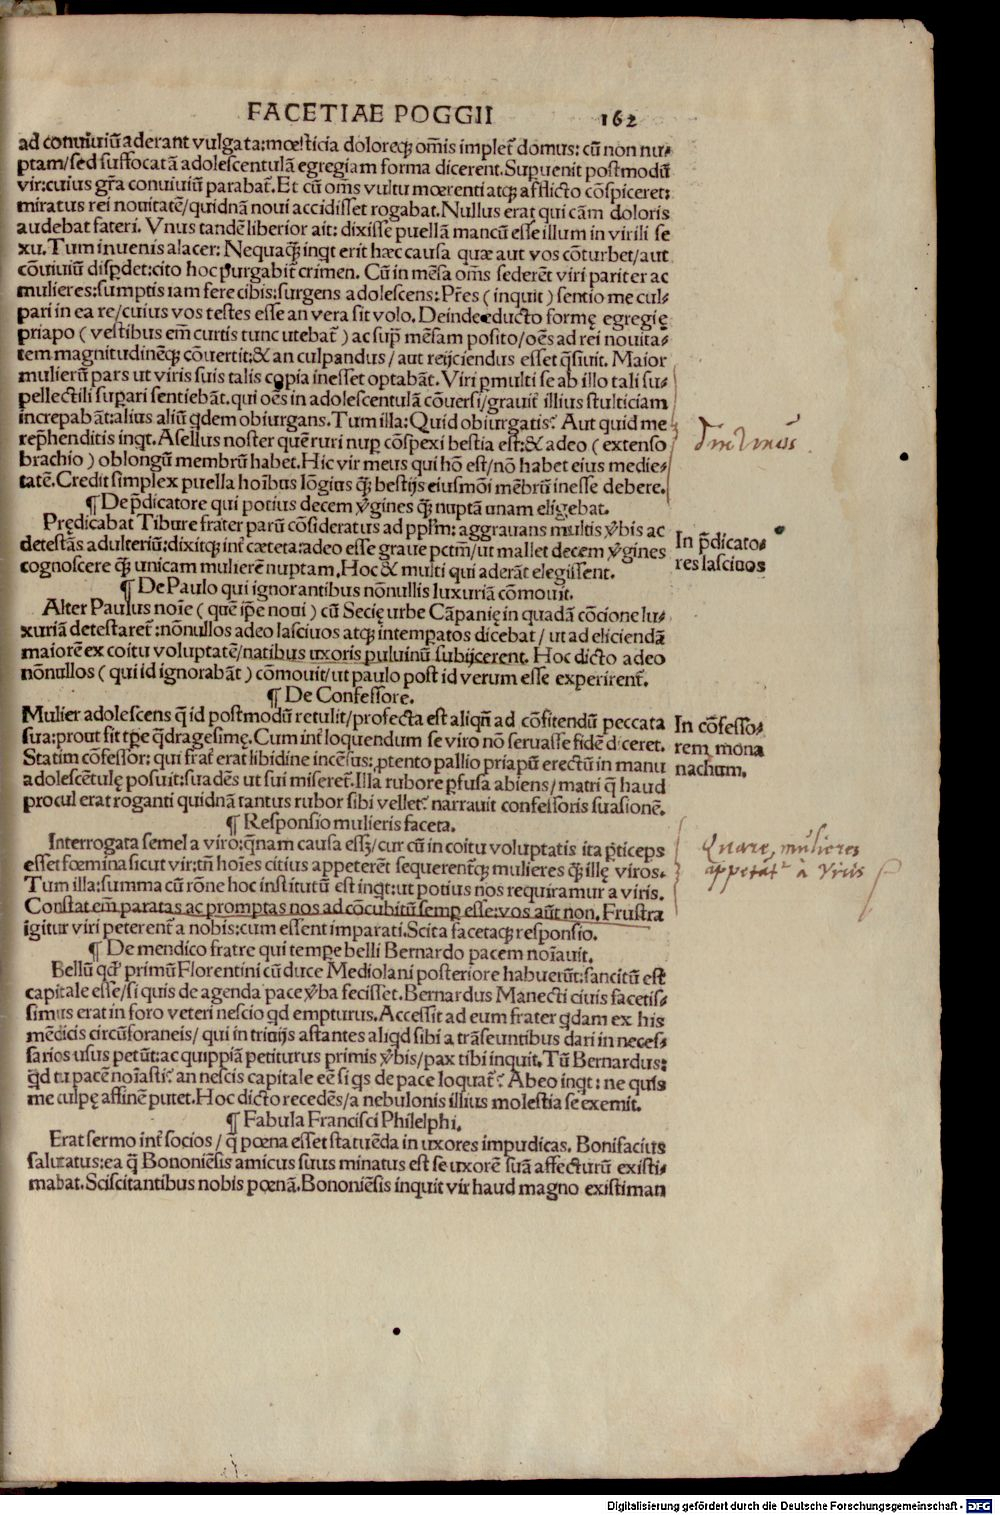 FACETIAE POGGII 162
ad conuiuiū aderant vulgata: mœsticia doloreq; om̄is implet̄ domus: cū non nu-
ptam/sed suffocatā adolescentulā egregiam forma dicerent. Supuenit postmodū
vir: cuius gr̄a conuiuiū parabat̄. Et cū om̄s vultu mœrenti atq; afflicto cōspiceret:
miratus rei nouitatē/quidnā noui accidisset rogabat. Nullus erat qui cām doloris
audebat fateri. Vnus tandē liberior ait: dixisse puellā mancū esse illum in virili se
xu. Tum inuenis alacer: Nequaq̄; inqt erit hæc causa quæ aut vos cōturbet/aut
cōuiuiū disp̱det: cito hoc p̱urgabit̄ crimen. Cū in mēsa om̄s sederēt viri pariter ac
mulieres: sumptis iam fere cibis: surgens adolescens: Pr̄es (inquit) sentio me cul-
pari in ea re/cuius vos testes esse an vera sit volo. Deinde educto formę egregię
priapo (vestibus em̄ curtis tunc utebat̄) ac sup̱ mēsam posito/oēs ad rei nouita-
tem magnitudinēq; cōuertit: & an culpandus/aut reijciendus esset q̄siuit. Maior
mulierū pars ut viris suis talis copia inesset optabāt. Viri p̱multi se ab illo tali su-
pellectili sup̱ari sentiebāt. qui oēs in adolescentulā cōuersi/grauit̄ illius stulticiam
increpabāt: alius aliū qdem obiurgans. Tum illa: Quid obiurgatis? Aut quid me
rep̄henditis inqt. Asellus noster quē ruri nup̱ cōspexi bestia est: & adeo (extenso
brachio) oblongū membrū habet. Hic vir meus qui hō est/nō habet eius medie-
tatē. Credit simplex puella hoībus lōgius q̄; bestijs eiusmōi mēbrū inesse debere.
¶ De p̄dicatore qui potius decem v̄gines q̄; nuptā unam eligebat.
Prędicabat Tibure frater parū cōsideratus ad pp̄lm: aggrauans multis v̄bis ac
detestās adulteriū: dixitq; int̄ cæteta: adeo esse graue pctm̄/ut mallet decem v̄gines
cognoscere q̄; unicam mulierē nuptam. Hoc & multi qui aderāt elegissent.
In p̄dicato-
res lasciuos
¶ De Paulo qui ignorantibus nōnullis luxuriā cōmouit.
Alter Paulus noīe (quē ip̄e noui) cū Secię urbe Cāpanię in quadā cōcione lu-
xuriā detestaret̄: nōnullos adeo lasciuos atq; intemp̱atos dicebat/ut ad eliciendā
maiorē ex coitu voluptatē/natibus uxoris puluinū subijcerent. Hoc dicto adeo
nōnullos (qui id ignorabāt) cōmouit/ut paulo post id verum esse experirent̄.
¶ De Confessore.
Mulier adolescens q̄ id postmodū retulit/profecta est aliqn̄ ad cōfitendū peccata
sua: prout fit tp̄e q̄dragesimę. Cum int̄ loquendum se viro nō seruasse fidē diceret.
Statim cōfessor: qui frat̄ erat libidine incēsus: p̱tento pallio priapū erectū in manu
adolescētulę posuit: suadēs ut sui miseret̄. Illa rubore p̱fusa abiens/matri q̄ haud
procul erat roganti quidnā tantus rubor sibi vellet? narrauit confessoris suasionē.
In cōfesso-
rem mona
nachum.
¶ Responsio mulieris faceta.
Interrogata semel a viro: q̄nam causa ess;/cur cū in coitu voluptatis ita p̱ticeps
esset fœmina sicut vir: tn̄ hoīes citius appeterēt sequerent̄q; mulieres q̄; illę viros.
Tum illa: summa cū rōne hoc institutū est inqt: ut potius nos requiramur a viris.
Constat em̄ paratas ac promptas nos ad cōcubitū semp̱ esse: vos aūt non. Frustra
igitur viri peterent̄ a nobis: cum essent imparati. Scita facetaq; responsio.
Quare mulieres
appetāt̄ à Viris
¶ De mendico fratre qui tempe belli Bernardo pacem noīauit.
Bellū qd̄ primū Florentini cū duce Mediolani posteriore habuerūt: sancitū est
capitale esse/si quis de agenda pace v̄ba fecisset. Bernardus Manecti ciuis facetis-
simus erat in foro veteri nescio qd empturus. Accessit ad eum frater qdam ex his
mēdicis circūforaneis/qui in triuijs astantes aliqd sibi a trāseuntibus dari in neces-
sarios usus petūt: ac quippiā petiturus primis v̄bis/pax tibi inquit. Tū Bernardus:
qd tu pacē noīasti? an nescis capitale eē si qs de pace loquat̄? Abeo inqt: ne quis
me culpę affinē putet. Hoc dicto recedēs/a nebulonis illius molestia se exemit.
¶ Fabula Francisci Philelphi.
Erat sermo int̄ socios/q̄ pœna esset statuēda in uxores impudicas. Bonifacius
salutatus: ea q̄ Bononiēsis amicus suus minatus est se uxorē suā affecturū existi-
mabat. Sciscitantibus nobis pœnā. Bononiēsis inquit vir haud magno existiman
Digitalisierung gefördert durch die Deutsche Forschungsgemeinschaft - DFG